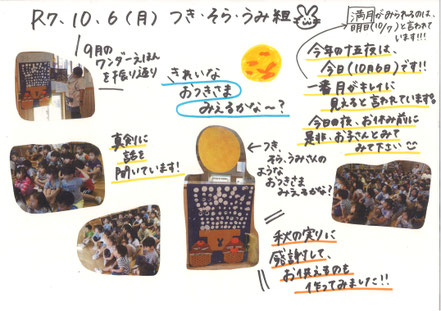 R7.10.6(月) つき・そら・うみ組
満月がみられるのは、
明日(10/7)と言われて
います!!!
9月の
ワンダーえほん
を振り返り
きれいな
おつきさま
みえるかな〜?
今年の十五夜は、
今日(10月6日)です!!
一番月がキレイに
見えると言われています
今日の夜、お休み前に
是非、お子さんとみて
みて下さい
真剣に
話を
聞いています!
←つき、
そら、うみさんの
ような
おつきさま
みえるかな?
秋の実りに
感謝して、
お供えものを
作ってみました!!